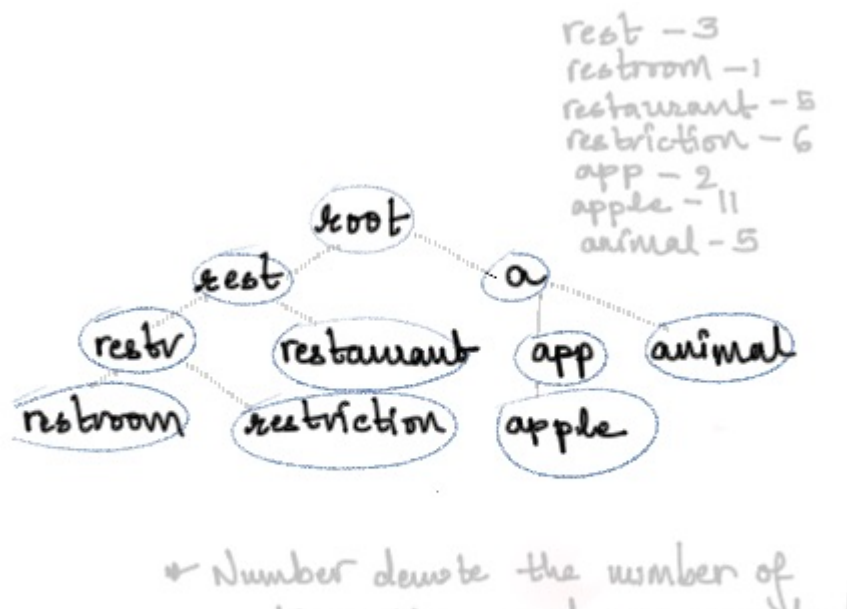 rest - 3
restroom - 1
restaurant - 5
restriction - 6
app - 2
apple - 11
animal - 5
root
rest
a
restr
restaurant
app
animal
restroom
restriction
apple
* Number denote the number of